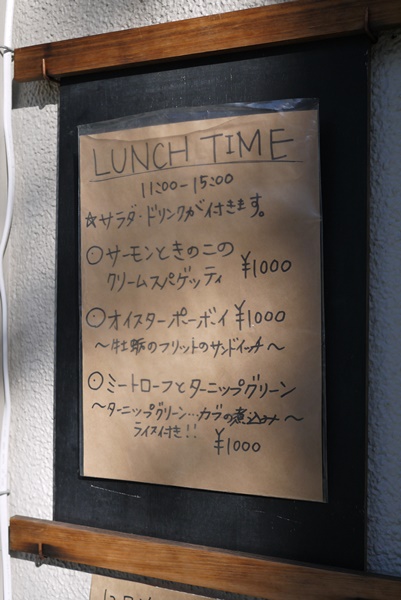 LUNCH TIME
11:00-15:00
☆サラダ・ドリンクが付きます。
⦿サーモンときのこの
クリームスパゲッティ ¥1000
⦿オイスターポーボーイ ¥1000
〜牡蛎のフリットのサンドイッチ〜
⦿ミートローフとターニップグリーン
〜ターニップグリーン…カブの煮込み〜
ライス付き!!
¥1000